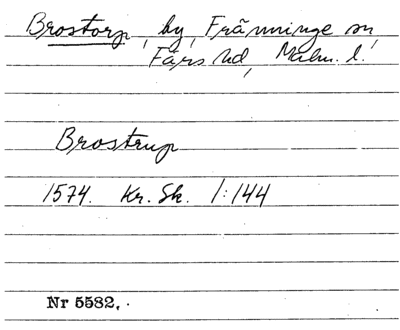 Brostorp, by, Fränninge sn,
Färs hd, Malm. l.
Brostrup
1574. Kr. Sk. 1:144
Nr 5582.